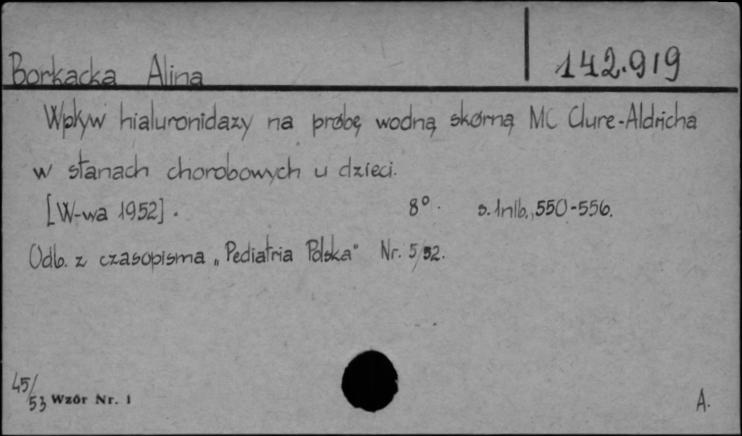 142.919
Borkacka Alina
Wpływ hialuronidazy na próbę wodną skórną Mc Clure-Aldricha
w stanach chorobowych u dzieci.
[W-wa 1952]. 8°. s. 1nlb., 550-556.
Odb. z czasopisma „Pediatria Polska" Nr. 5/52.
45/53 Wzór Nr. 1 A.